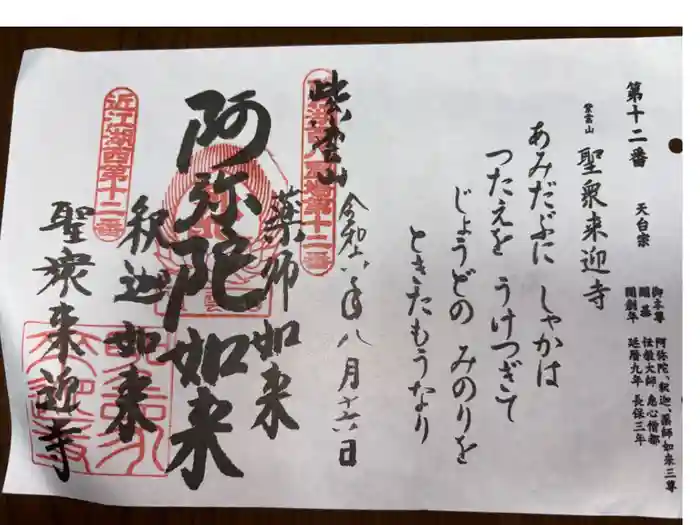 第十二番
天台宗
紫雲山
聖衆来迎寺
御本尊 阿弥陀、釈迦、薬師如来三尊
開基 伝教大師 恵心僧都
開創年 延暦九年 長保三年
あみだぶに しゃかは
つたえを うけつぎて
じょうどの みのりを
ときたもうなり
令和六年八月十六日
紫雲山
薬師如来
阿弥陀如来
釈迦如来
近江湖西第十二番
聖衆来迎寺